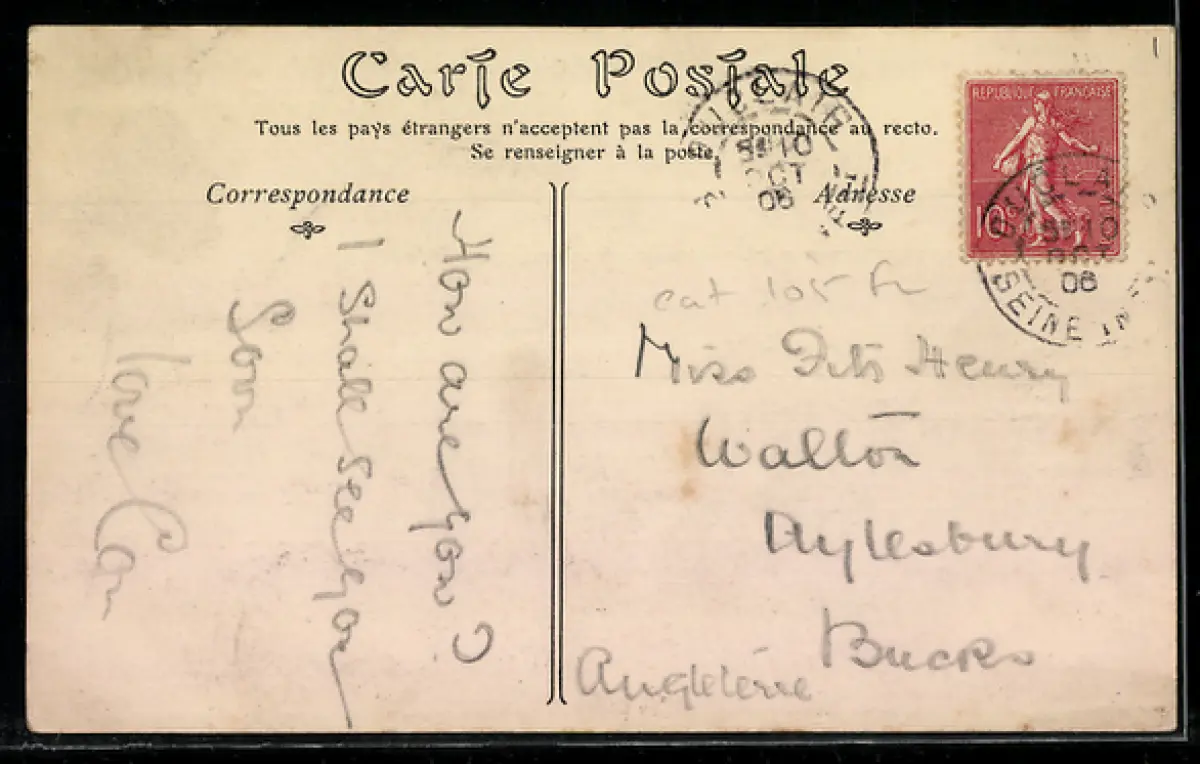 Carte Postale
Tous les pays étrangers n'acceptent pas la correspondance au recto.
Se renseigner à la poste.
Correspondance
Adresse
How are you?
I Shall See you
Soon
love Con
REPUBLIQUE FRANÇAISE
10
10
OCT
06
10
OCT
06
SEINE IN
cat 105 fr
Miss Fitz Henry
Walton
Aylesbury
Bucks
Angleterre